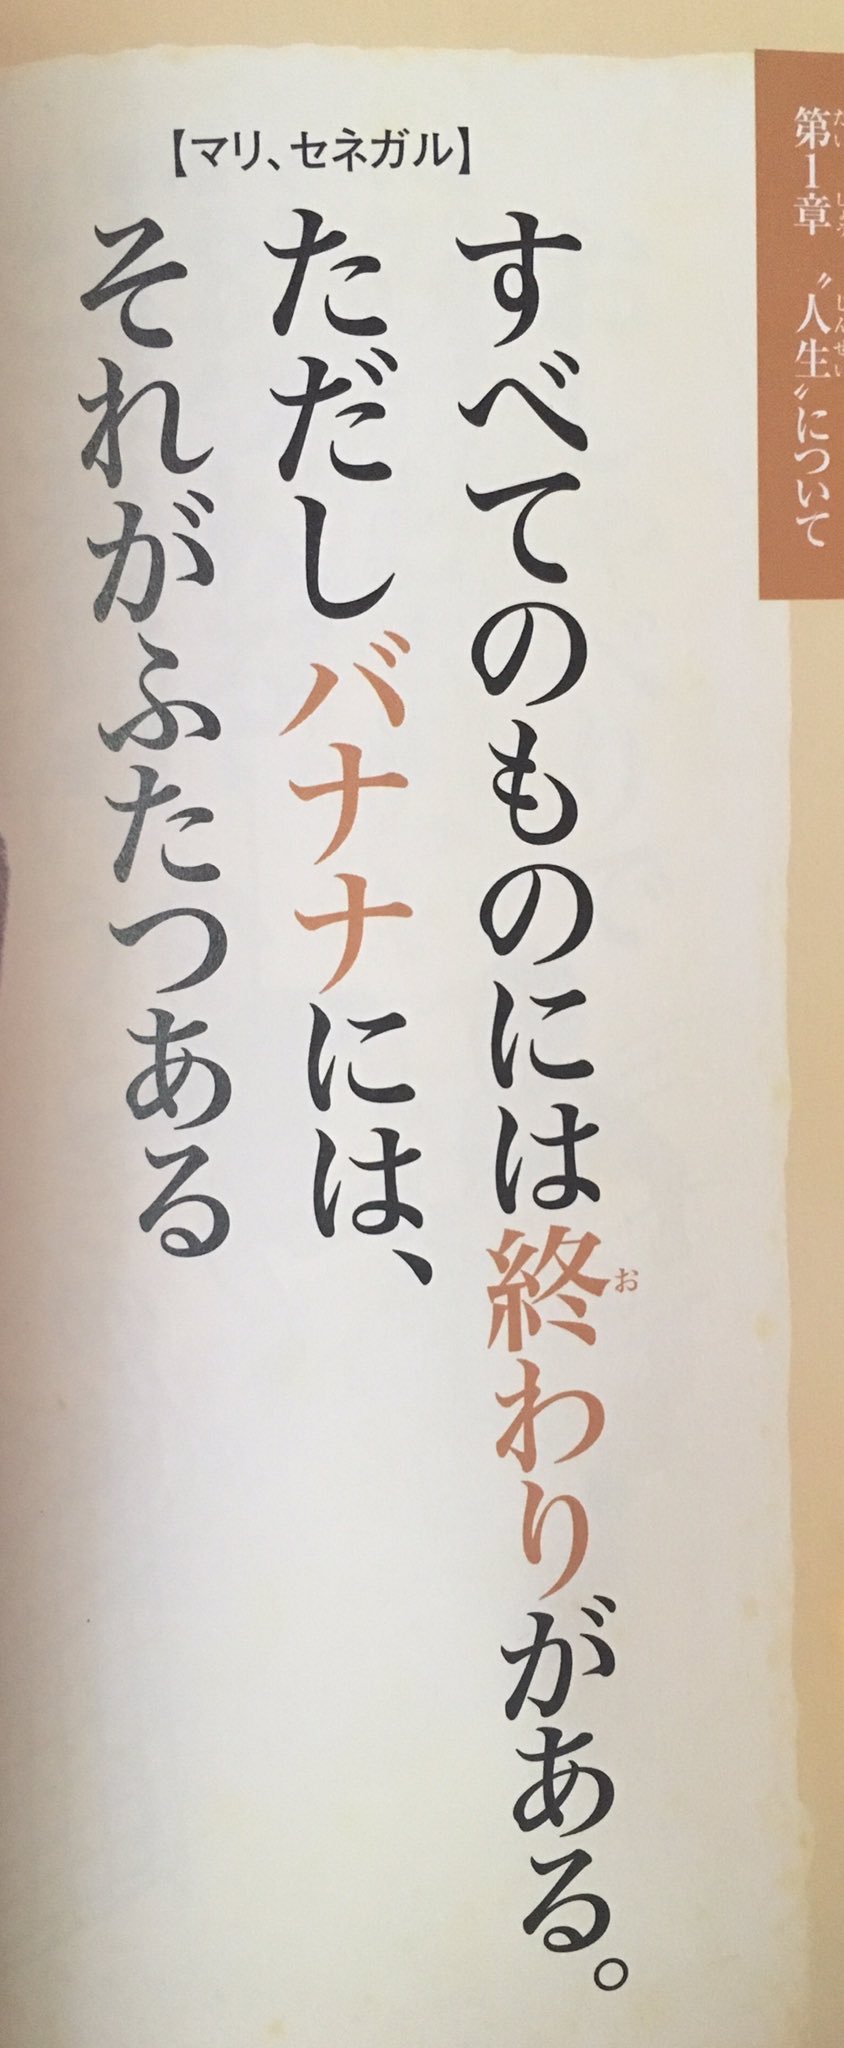 第1章 〝人生〟について
【マリ、セネガル】
すべてのものには終わりがある。
ただしバナナには、
それがふたつある